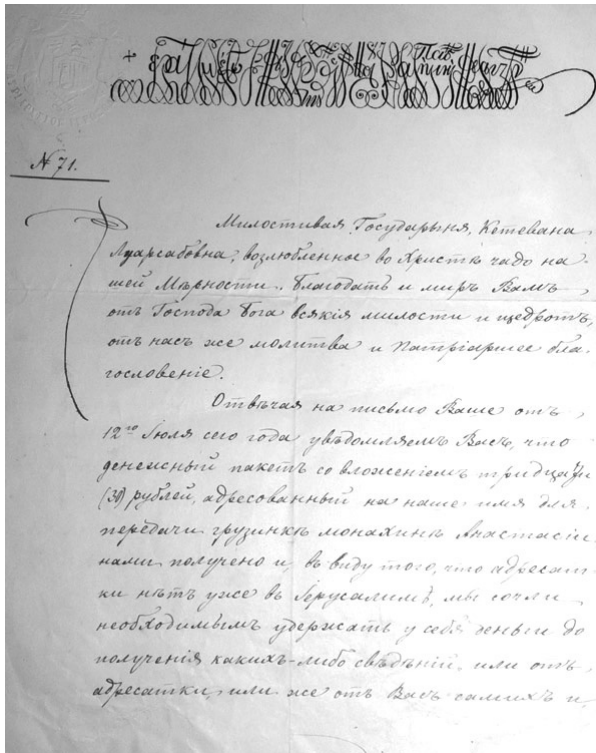 № 71.
Милостивая Государыня, Кетевана
Луарсабовна, возлюбленное во Христѣ чадо на-
шей Мѣрности. Благодать и миръ Вамъ
отъ Господа Бога всякія милости и щедротъ,
отъ насъ же молитва и Патріаршее бла-
гословеніе.
Отвѣчая на письмо Ваше отъ
12го Іюля сего года увѣдомляемъ Васъ, что
денежный пакетъ со вложеніемъ тридцати
(30) рублей, адресованный на наше имя для
передачи грузинкѣ монахинѣ Анастасіи
нами получено и, въ виду того, что адресат-
ки нѣтъ уже въ Іерусалимѣ, мы сочли
необходимымъ удержать у себя деньги до
полученія какихъ-либо свѣдѣній, или отъ
адресатки, или же отъ Васъ самихъ и,